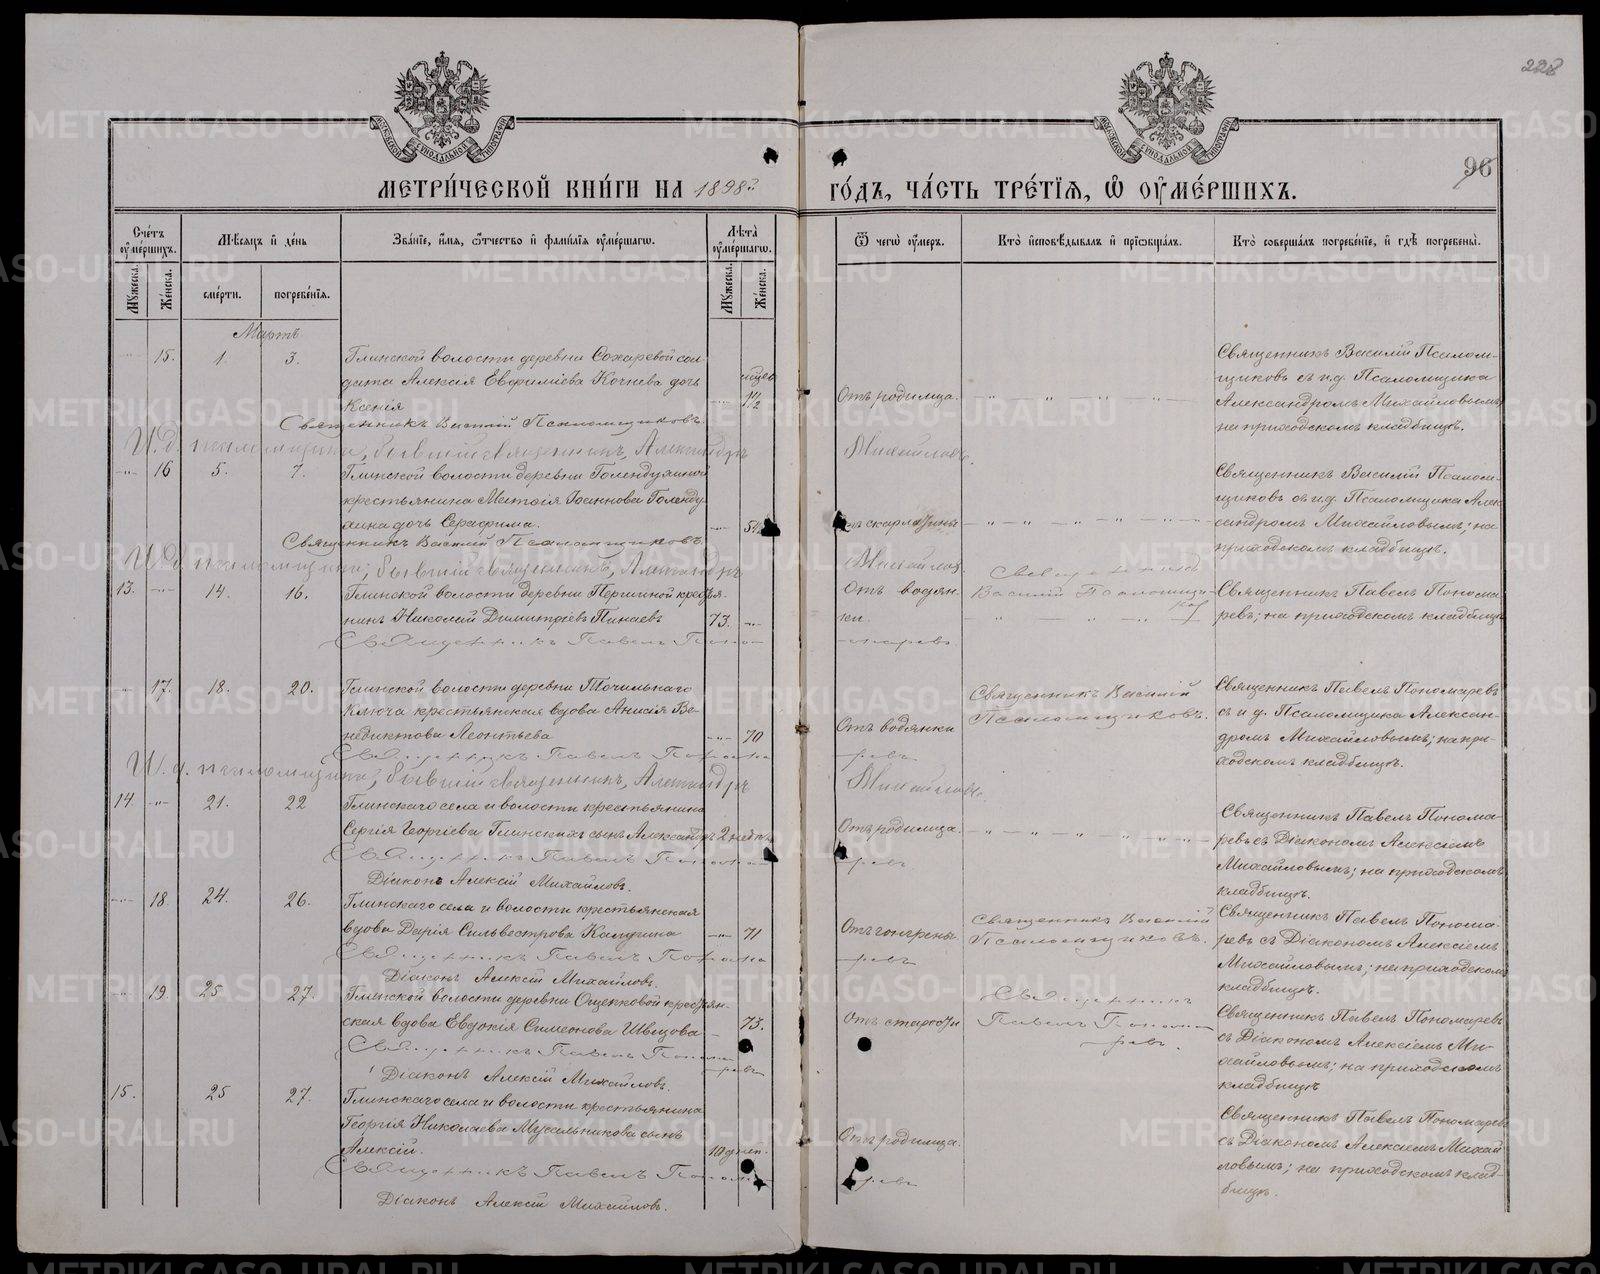 228
96
МЕТРИ́ЧЕСКОЙ КНИ́ГИ НА 1898й
ГО́ДЪ, ЧА́СТЬ ТРЕ́ТІѦ, Ѽ ОУ҆МЕ́РШИХЪ.
Сче́тъ оумершихъ.
Мѣсяцъ и день
Зва́нїе, и҆мѧ, ѻ҆́тчество и҆ фамилїя оумершагѡ.
Лѣта̀ оумершагѡ.
Ѿ чегѡ̀ оумеръ.
Кто̀ и҆сповѣ́дывалъ и҆ прїѡбща́лъ.
Кто̀ соверша́лъ погребе́нїе, и҆ гдѣ̀ погребены̀.
Мужеска.
Женска.
сме́рти.
погребе́нїя.
Мужеска.
Женска.
Мартъ
15. 1. 3.
Глинской волости деревни Сохаревой сол-
дата Алексія Евфиміева Кочнева дочь
Ксенія
мѣсяц. 1½
Отъ родимца.
Священникъ Василій Псалом-
щиковъ съ и.д. Псаломщика
Александромъ Михайловымъ;
на приходскомъ кладбищѣ.
Священникъ Василій Псаломщиковъ.
И.д. псаломщика, бывшій священникъ, Александръ Михайловъ.
16 5. 7.
Глинской волости деревни Голендухиной
крестьянина Матѳія Іоаннова Голенду-
хина дочь Серафима.
отъ скарлатины
Священникъ Василій Псалом-
щиковъ съ и.д. Псаломщика Алек-
сандромъ Михайловымъ; на
приходскомъ кладбищѣ.
Священникъ Василій Псаломщиковъ.
И.д. псаломщика, бывшій священникъ, Александръ Михайлов.
13. 14. 16.
Глинской волости деревни Першиной крестья-
нинъ Николай Димитріевъ Пинаевъ
73.
Отъ водян-
ки.
Священникъ
Василій Псаломщи-
ков
Священникъ Павелъ Понома-
ревъ; на приходскомъ кладбищѣ
Священникъ Павелъ Поно-
маревъ
17. 18. 20.
Глинской волости деревни Точильнаго
Ключа крестьянская вдова Анисія Ве-
недиктова Леонтьева
70
Отъ водянки
Священникъ Василій
Псаломщиковъ.
Священникъ Павелъ Пономаревъ
съ и д. Псаломщика Алексан-
дромъ Михайловымъ; на при-
ходскомъ кладбищѣ.
Священникъ Павелъ Пономаревъ
И.д. псаломщика, бывшій священникъ, Александръ Михайловъ.
14 21. 22
Глинскаго села и волости крестьянина
Сергія Георгіева Глинскихъ сынъ Александръ
2 недѣл.
Отъ родимца.
Священникъ Павелъ Понома-
ревъ съ Діакономъ Алексіемъ
Михайловымъ; на приходскомъ
кладбищѣ.
Священникъ Павелъ Пономаревъ
Діаконъ Алексій Михайловъ.
18. 24. 26.
Глинскаго села и волости крестьянская
вдова Дарія Сильвестрова Калугина
71
Священникъ Василій
Псаломщиковъ.
Священникъ Павелъ Понома-
ревъ съ Діакономъ Алексіемъ
Михайловымъ; на приходском
кладбищѣ.
Священникъ Павелъ Пономаревъ
Діаконъ Алексій Михайловъ.
19. 25 27.
Глинской волости деревни Ощепковой крестьян-
ская вдова Евдокія Симеонова Швецова
73.
Отъ старости
Священникъ
Павелъ Понома-
ревъ.
Священникъ Павелъ Пономаревъ
съ Діакономъ Алексіемъ Ми-
хайловымъ; на приходскомъ
кладбищѣ
Священникъ Павелъ Понома-
ревъ
Діаконъ Алексій Михайловъ.
15. 25 27.
Глинскаго села и волости крестьянина
Георгія Николаева Мусальникова сынъ
Алексій.
10 дней.
Отъ родимца.
Священникъ Павелъ Пономарев
съ Діакономъ Алексіемъ Михай
ловымъ; на приходскомъ клад-
бищѣ.
Священникъ Павелъ Пономаревъ
Діаконъ Алексій Михайловъ.
METRIKI.GASO-URAL.RU